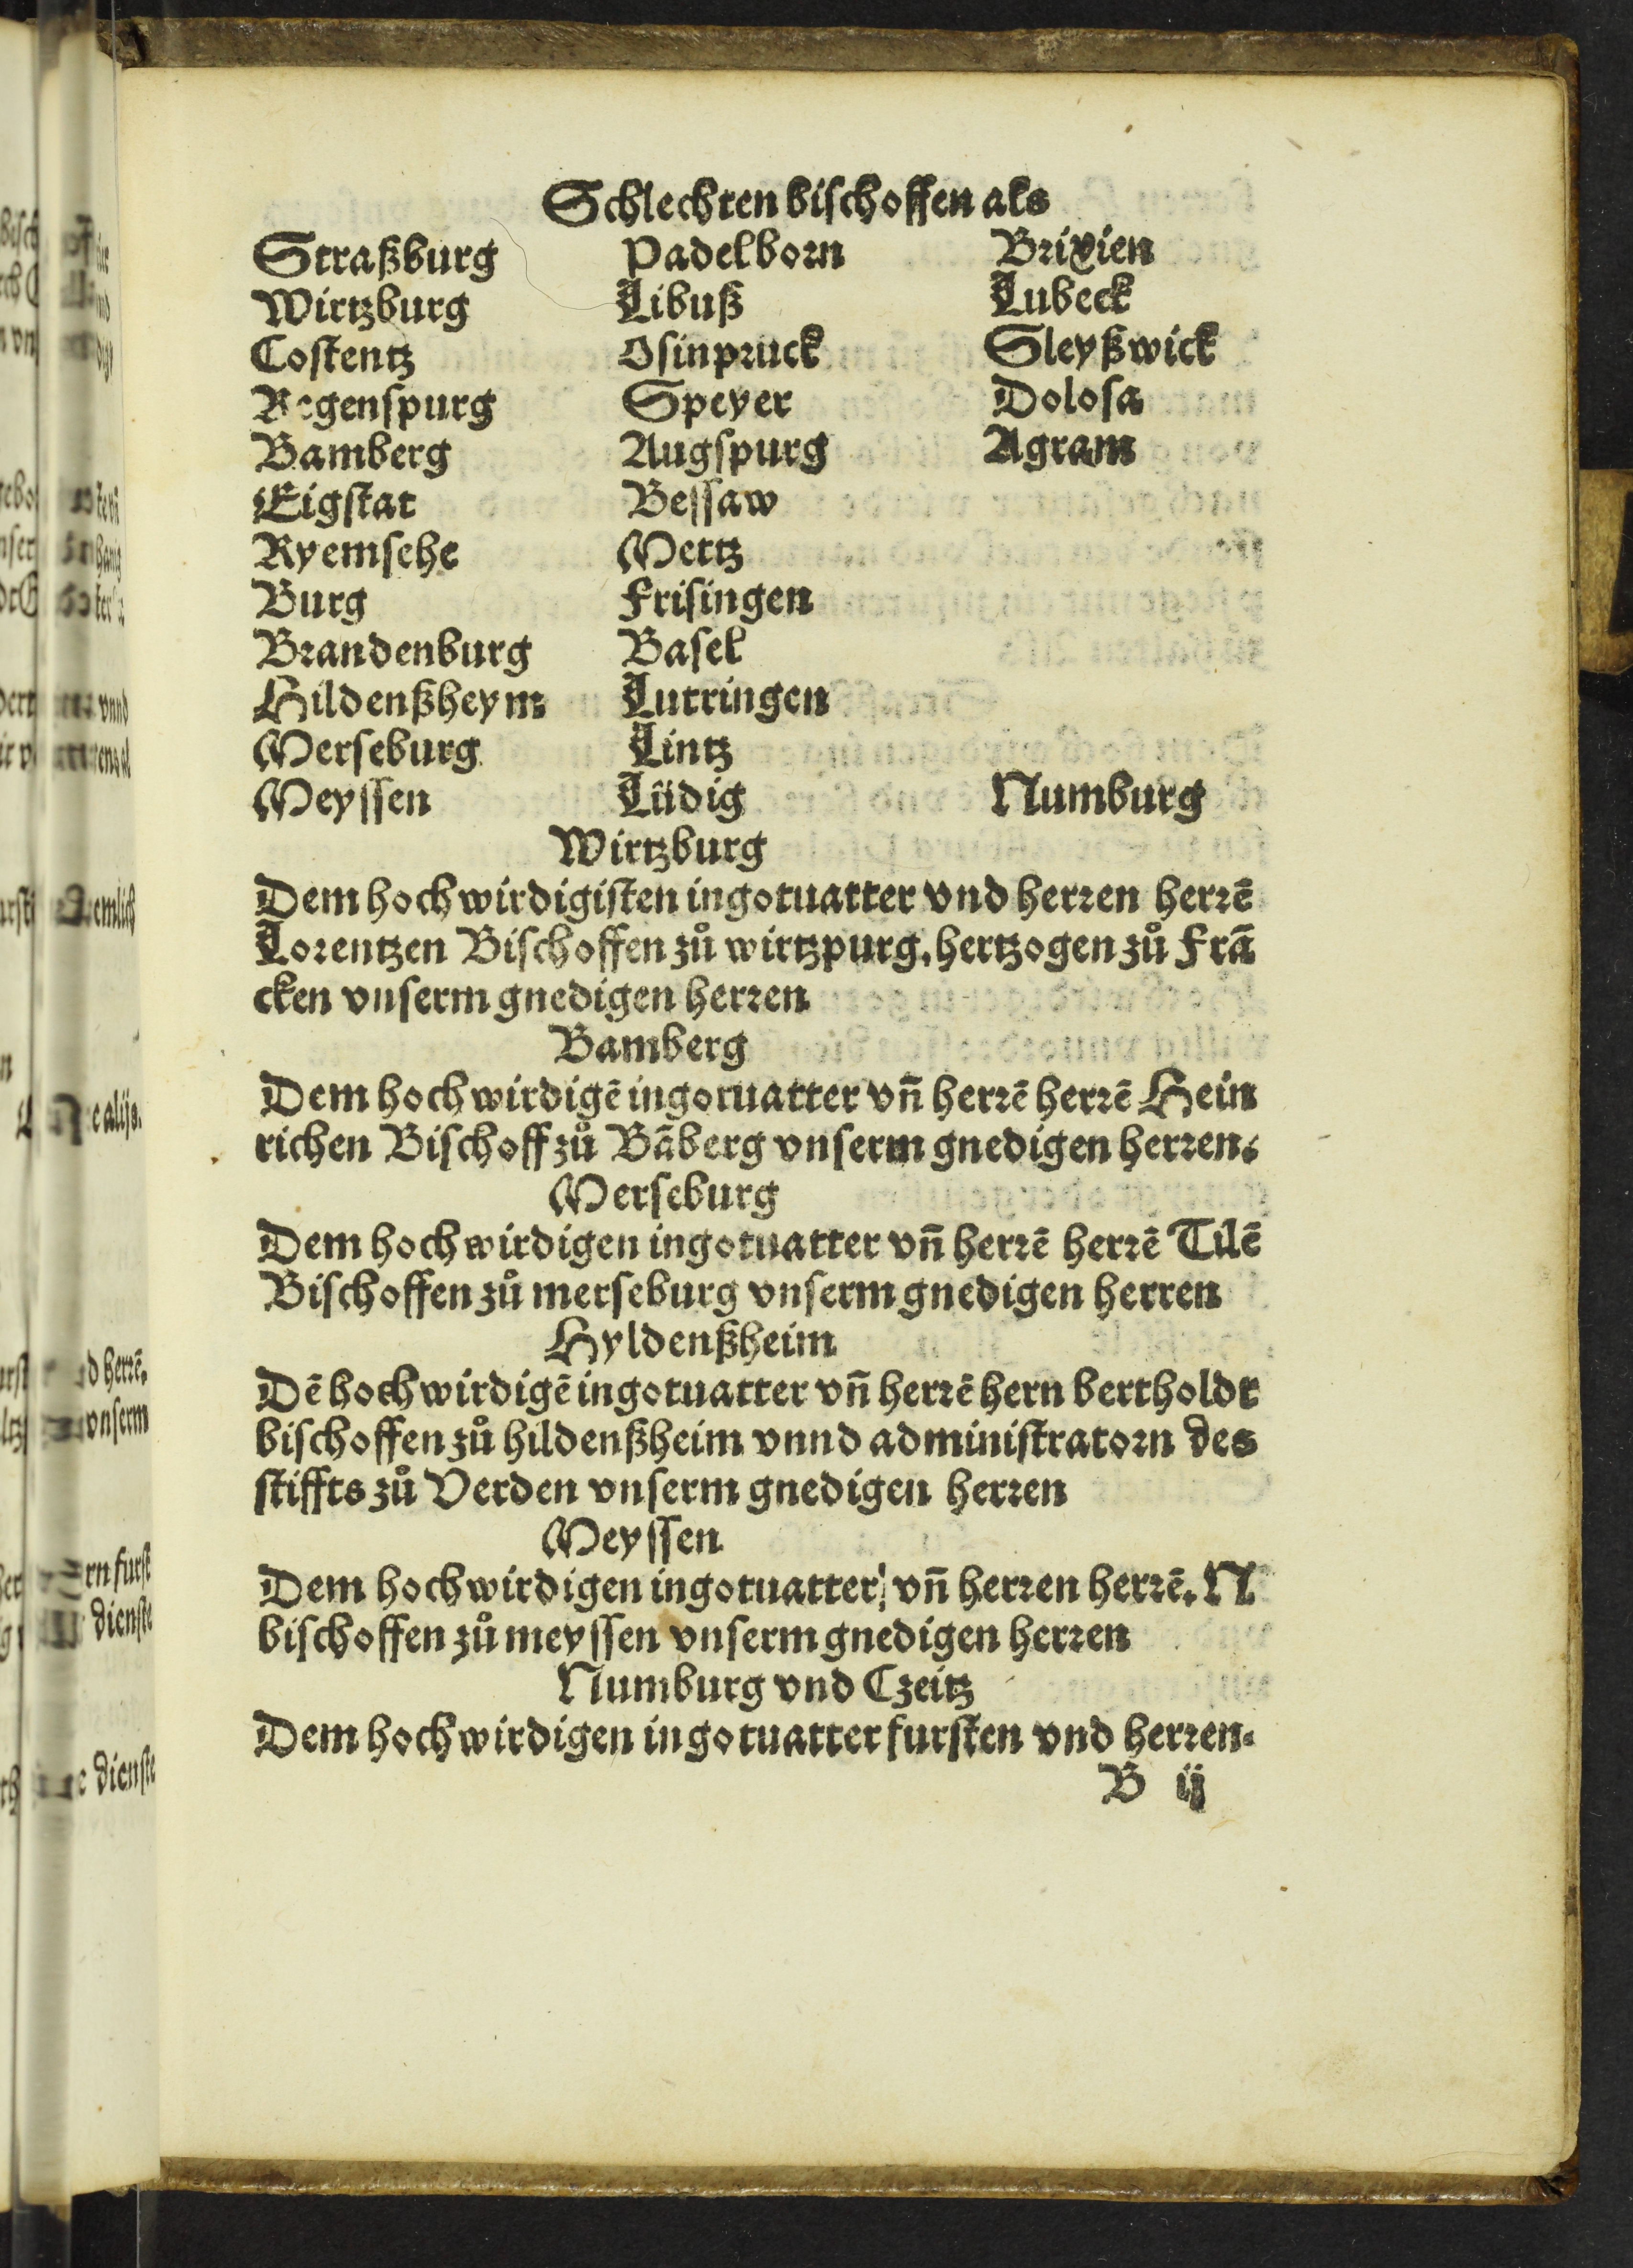 Schlechten bischoffen als
Straßburg Padelborn Brixien
Wirtzburg Libuß Lubeck
Costentz Osinpruck Sleyßwick
Regenspurg Speyer Dolosa
Bamberg Augspurg Agram
Eigstat Bessaw
Ryemsehe Mettz
Burg Frisingen
Brandenburg Basel
Hildenßheym Luttringen
Merseburg Lintz
Meyssen Lüdig Numburg
Wirtzburg
Dem hochwirdigisten in gotuatter vnd herren herrē
Lorentzen Bischoffen zů wirtzpurg, hertzogen zů Frā
cken vnserm gnedigen herren
Bamberg
Dem hochwirdigē in gotuatter vn̄ herrē herrē Hein
richen Bischoff zů Bāberg vnserm gnedigen herren.
Merseburg
Dem hochwirdigen in gotuatter vn̄ herrē herrē Tilē
Bischoffen zů merseburg vnserm gnedigen herren
Hyldenßheim
Dē hochwirdigē in gotuatter vn̄ herrē hern bertholdt
bischoffen zů hildenßheim vnnd administratorn des
stiffts zů Verden vnserm gnedigen herren
Meyssen
Dem hochwirdigen in gotuatter vn̄ herren herrē. N
bischoffen zů meyssen vnserm gnedigen herren
Numburg vnd Czeitz
Dem hochwirdigen in gotuatter fursten vnd herren.
B ij